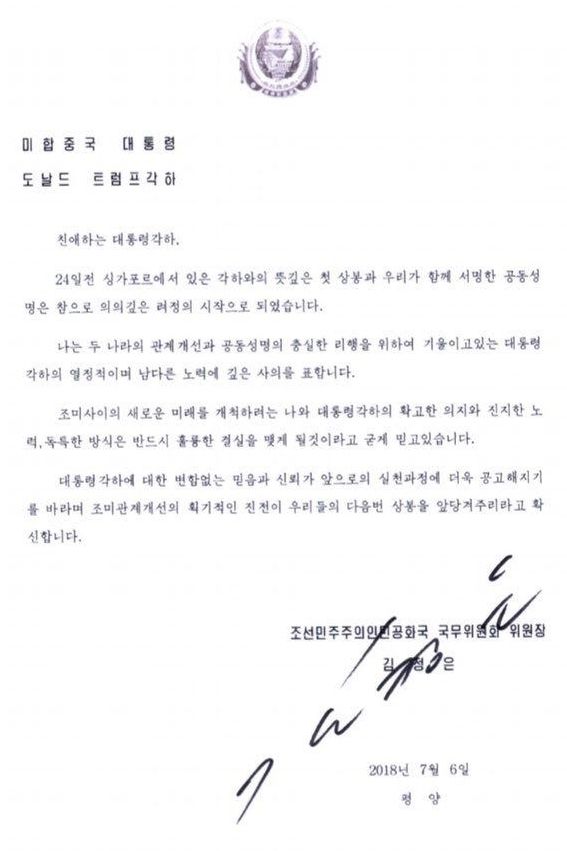 미합중국 대통령
도날드 트럼프각하
친애하는 대통령각하,
24일전 싱가포르에서 있은 각하와의 뜻깊은 첫 상봉과 우리가 함께 서명한 공동성
명은 참으로 의의깊은 려정의 시작으로 되였습니다.
나는 두 나라의 관계개선과 공동성명의 충실한 리행을 위하여 기울이고있는 대통령
각하의 열정적이며 남다른 노력에 깊은 사의를 표합니다.
조미사이의 새로운 미래를 개척하려는 나와 대통령각하의 확고한 의지와 진지한 노
력,독특한 방식은 반드시 훌륭한 결실을 맺게 될것이라고 굳게 믿고있습니다.
대통령각하에 대한 변함없는 믿음과 신뢰가 앞으로의 실천과정에 더욱 공고해지기
를 바라며 조미관계개선의 획기적인 진전이 우리들의 다음번 상봉을 앞당겨주리라고 확
신합니다.
조선민주주의인민공화국 국무위원회 위원장
김 정 은
2018년 7월 6일
평 양